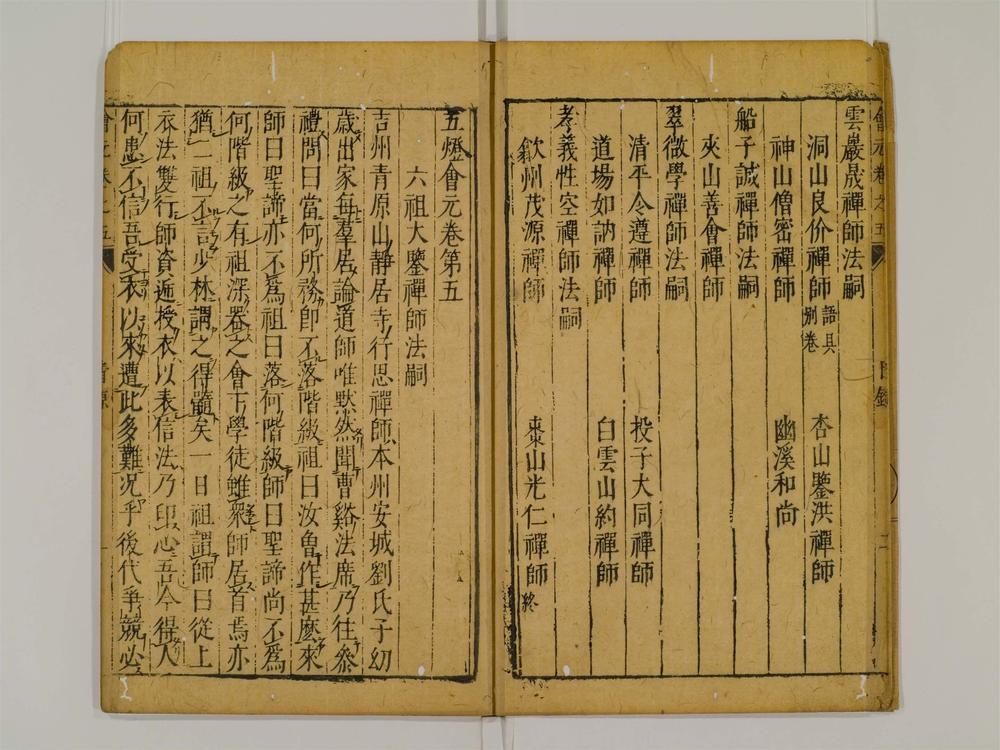 雲巖晟禪師法嗣
洞山良价禪師 語具別卷 杏山鑒洪禪師
神山僧密禪師 幽溪和尚
船子誠禪師法嗣
夾山善會禪師
翠微學禪師法嗣
清平令遵禪師 投子大同禪師
道場如訥禪師 白雲山約禪師
孝義性空禪師法嗣
歙州茂源禪師 棗山光仁禪師 終
五燈會元卷第五
六祖大鑒禪師法嗣
吉州青原山靜居寺行思禪師本州安城劉氏子幼
歲出家每羣居論道師唯默然聞曹谿法席乃往參
禮問曰當何所務即不落階級祖曰汝曾作甚麼來
師曰聖諦亦不爲祖曰落何階級師曰聖諦尚不爲
何階級之有祖深器之會下學徒雖衆師居首焉亦
猶二祖不言少林謂之得髓矣一日祖謂師曰從上
衣法雙行師資遞授衣以表信法乃印心吾今得人
何患不信吾受衣以來遭此多難況乎後代爭競必
會元卷之五